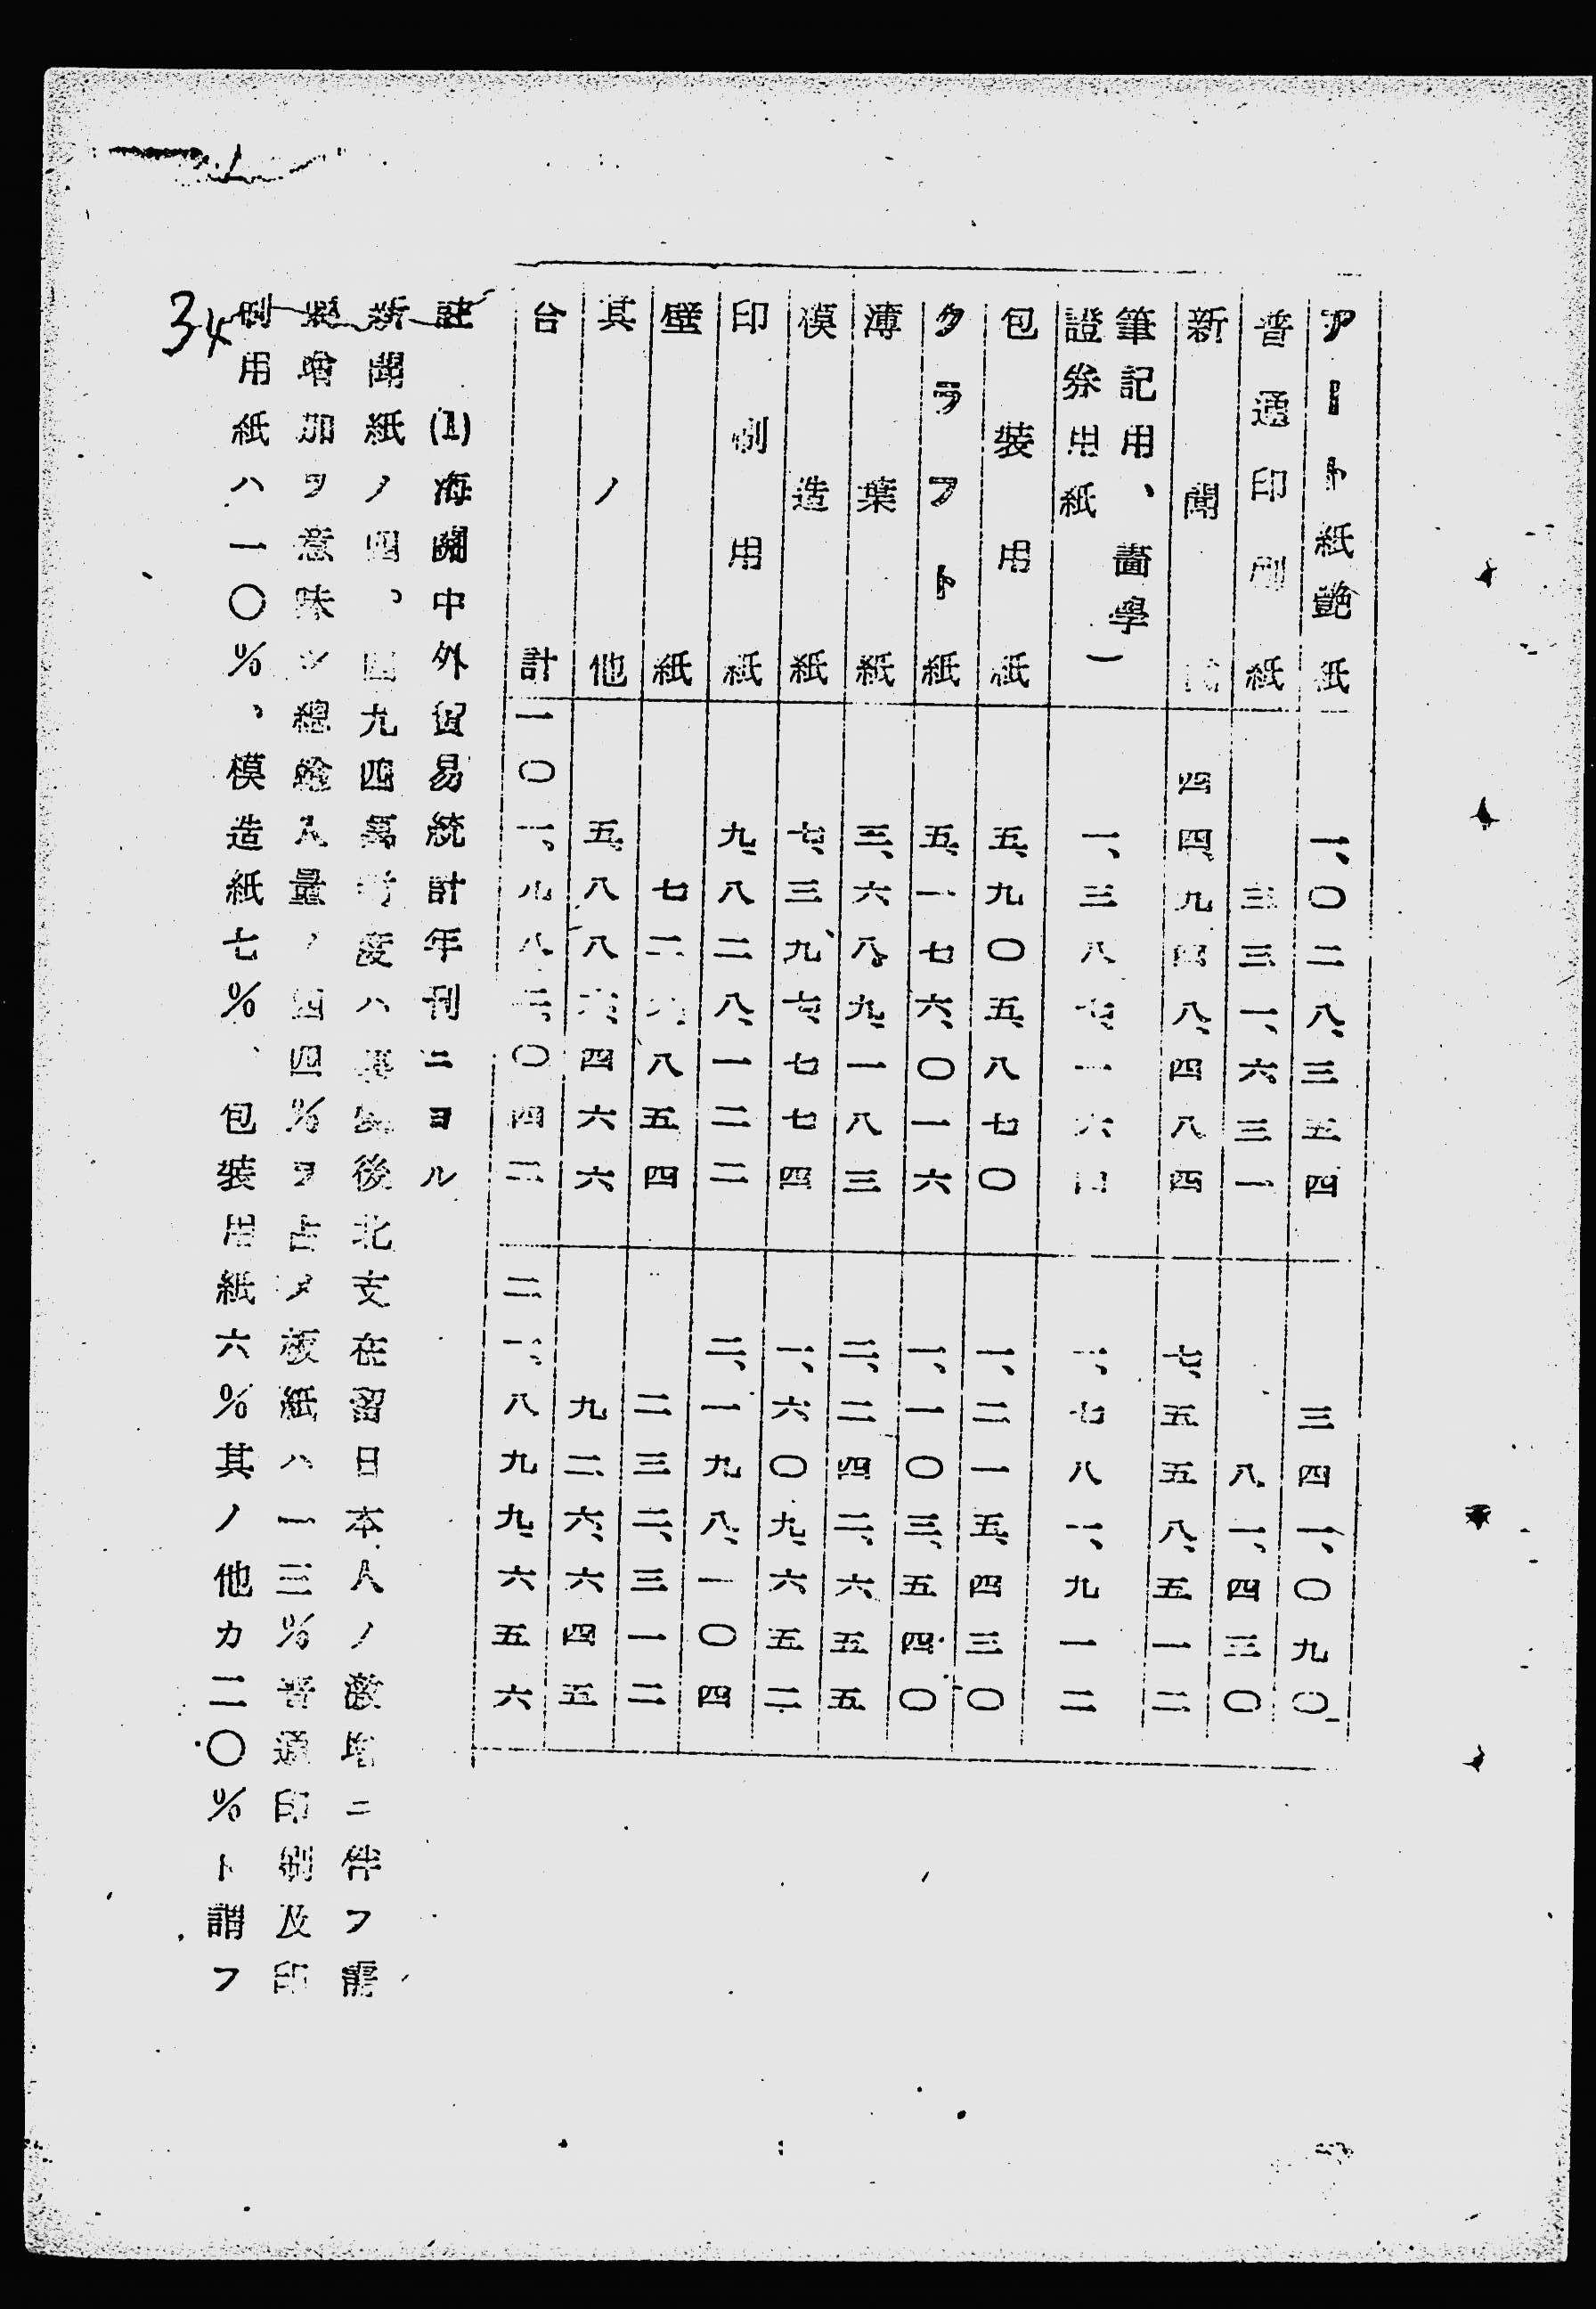 アート紙艶紙 一、〇二八、三五四 三四一、〇九〇
普通印刷紙 三三一、六三一 八一、四三〇
新聞 四四、九四八、四八四 七、五五八、五一二
筆記用、畵學
證券用紙 一、三八七、一六 一、七八一、九一二
包装用紙 五、九〇五、八七〇 一、二一五、四三〇
クラフト紙 五、一七六、〇一六 一、一〇三、五四〇
薄葉紙 三、六八九、一八三 二、二四二、六五五
模造紙 七、三九七、七七四 一、六〇九、六五二
印刷用紙 九、八二八、一二二 二、一九八、一〇四
壁紙 七二 八五四 二三二、三一二
其ノ他 五、八八六、四六六 九二六、六四五
合計 一〇一、九八二、〇四二 二一、八九九、六五六
註 (1)海關中外貿易統計年刊ニヨル
新聞紙ノ四四、九四萬 度ハ事變後北支在留日本人ノ激増ニ伴フ需
要増加ヲ意味シ總輸入量ノ四四%ヲ占メ板紙ハ一三%普通印刷及印
刷用紙ハ一〇%、模造紙七%、包装用紙六%其ノ他カ二〇%ト謂フ
34